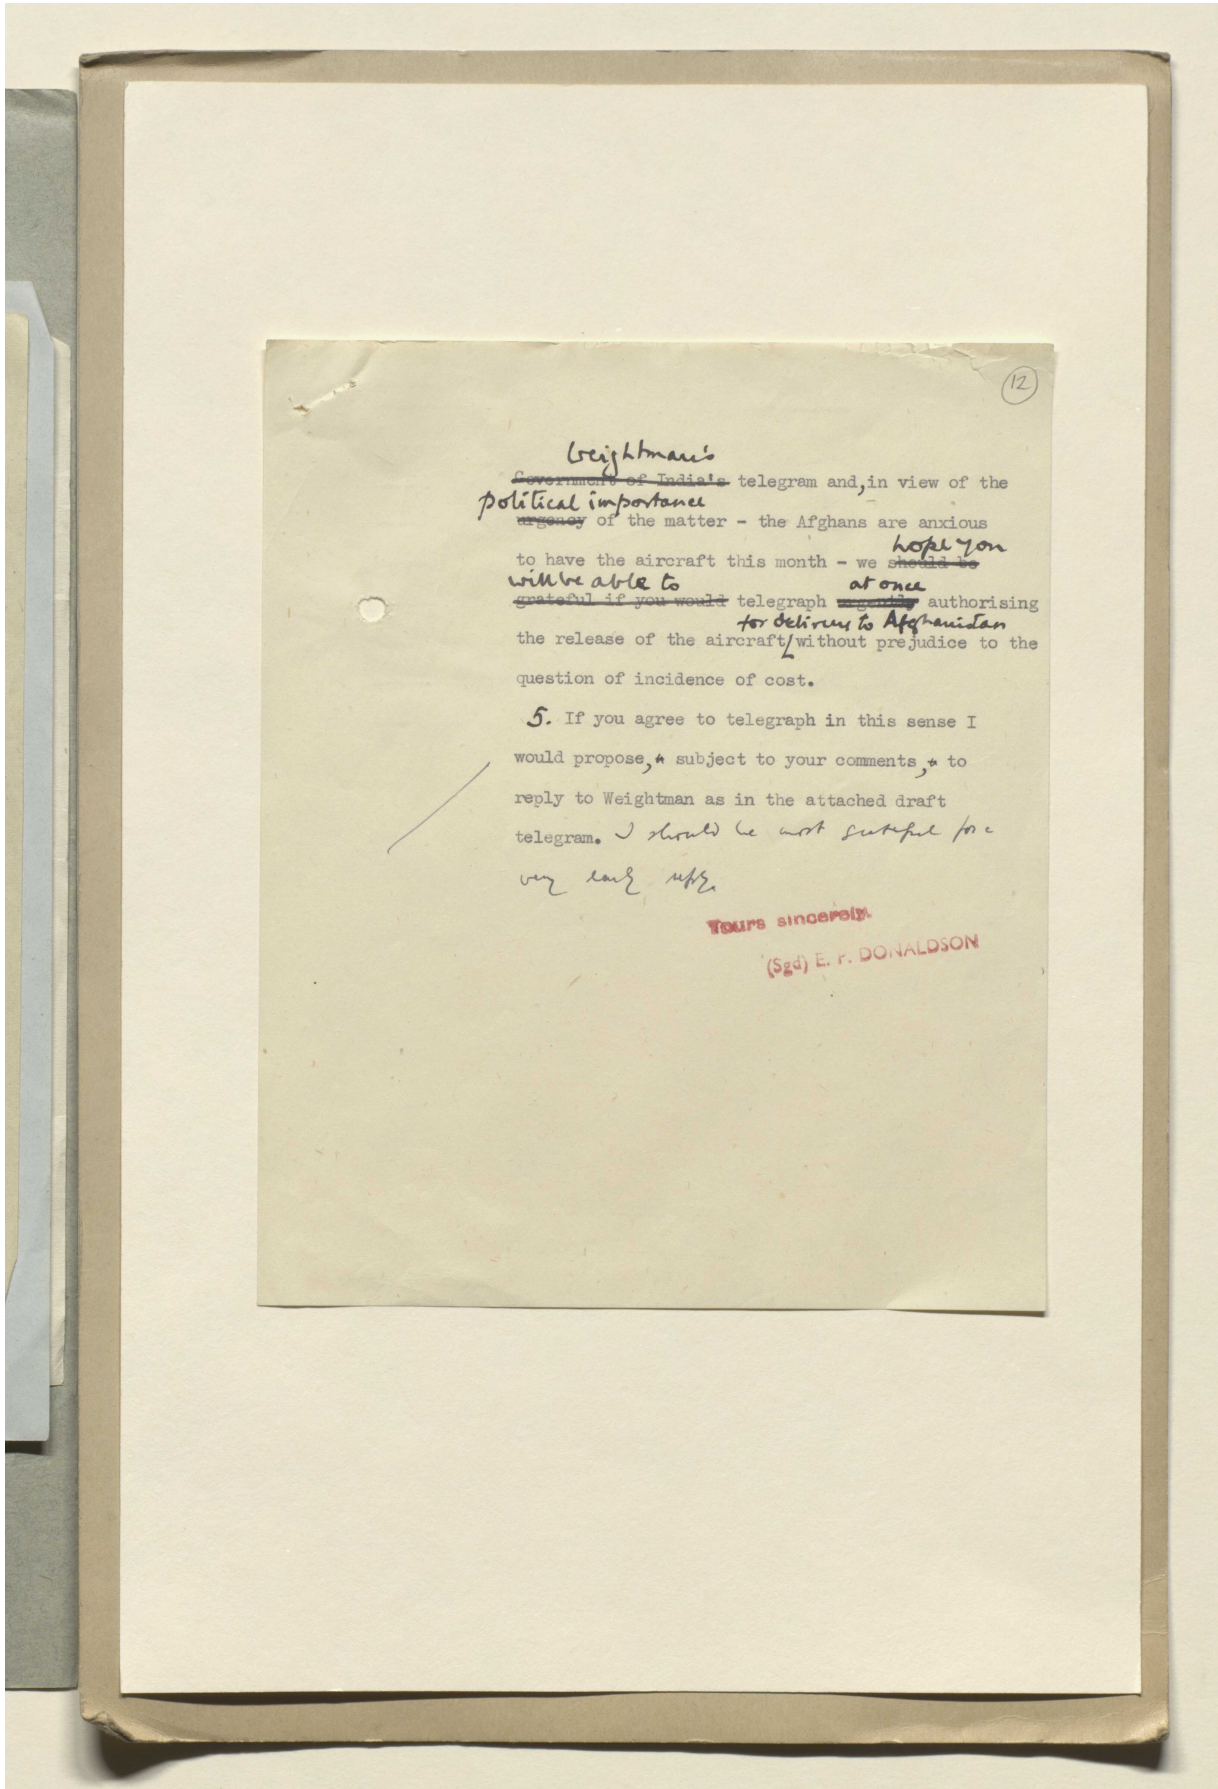 12
Weightman's
Government of India's telegram and, in view of the
political importance
urgency of the matter - the Afghans are anxious
hope you
to have the aircraft this month - we should be
will be able to at once
grateful if you would telegraph urgently authorising
for delivery to Afghanistan
the release of the aircraft / without prejudice to the
question of incidence of cost.
5. If you agree to telegraph in this sense I
would propose, subject to your comments, to
reply to Weightman as in the attached draft
telegram. I should be most grateful for a
very early reply.
Yours sincerely.
(Sgd) E. P. DONALDSON